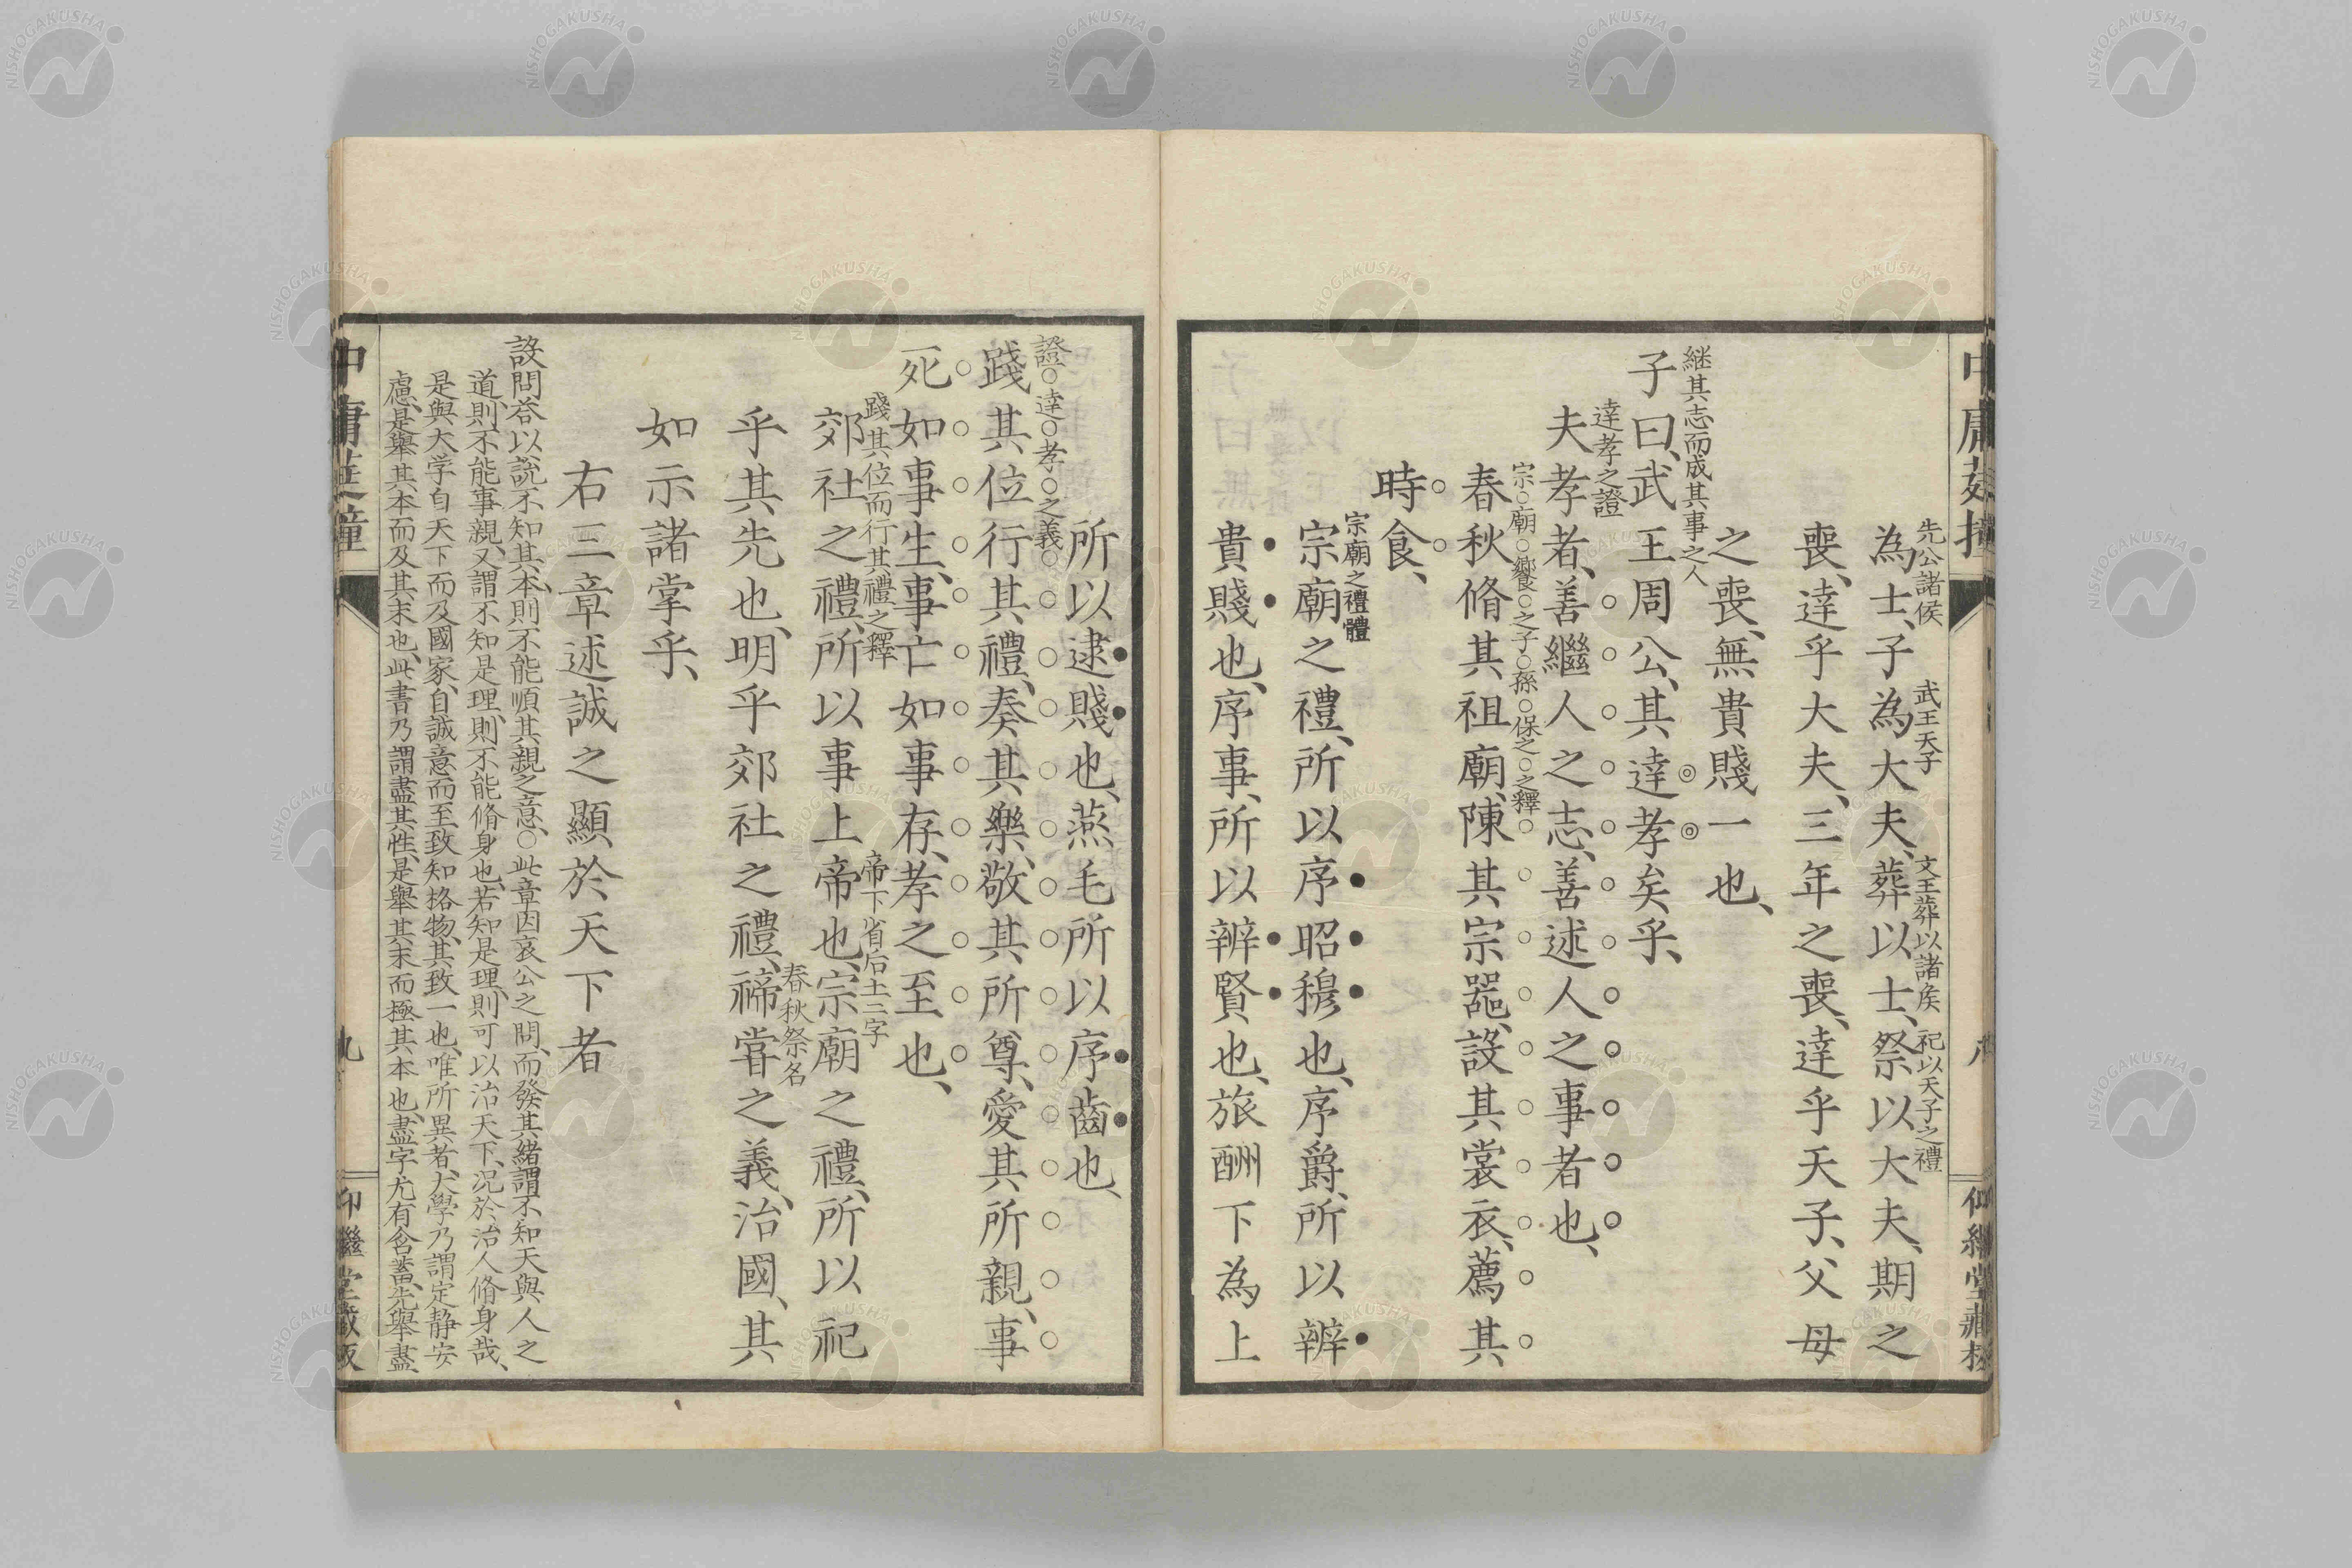 先公諸侯 武王天子 文王葬以諸侯 祀以天子之禮
為士、子為大夫、葬以士、祭以大夫、期之
喪、達乎大夫、三年之喪、達乎天子、父母
之喪、無貴賤一也、
継其志而成其事之人
子曰、武王周公、其達孝矣乎、
達孝之證
夫孝者、善繼人之志、善述人之事者也、
宗○廟○饗○之子○孫○保之○之釋○
春秋脩其祖廟、陳其宗器、設其裳衣、薦其
時食、
宗廟之禮體
宗廟之禮、所以序昭穆也、序爵、所以辨
貴賤也、序事、所以辨賢也、旅酬下為上
所以逮賤也、燕毛所以序齒也、
證○達○孝○之義○
踐其位行其禮、奏其樂、敬其所尊、愛其所親、事
死如事生、事亡如事存、孝之至也、
踐其位而行其禮之釋 帝下省后土二字
郊社之禮、所以事上帝也、宗廟之禮、所以祀
春秋祭名
乎其先也、明乎郊社之禮、禘甞之義、治國、其
如示諸掌乎、
右三章述誠之顯於天下者
設問荅以說不知其本、則不能順其親之意、○此章因哀公之問、而發其緒、謂不知天與人之
道、則不能事親、又謂不知是理、則不能脩身也、若知是理、則可以治天下、況於治人脩身哉、
是與大学自天下而及國家、自誠意而至致知格物、其致一也、唯所異者、大學乃謂定静安
慮、是舉其本而及其末也、此書乃謂盡其性、是舉其末而極其本也、盡字尤有含蓄、先舉盡
九